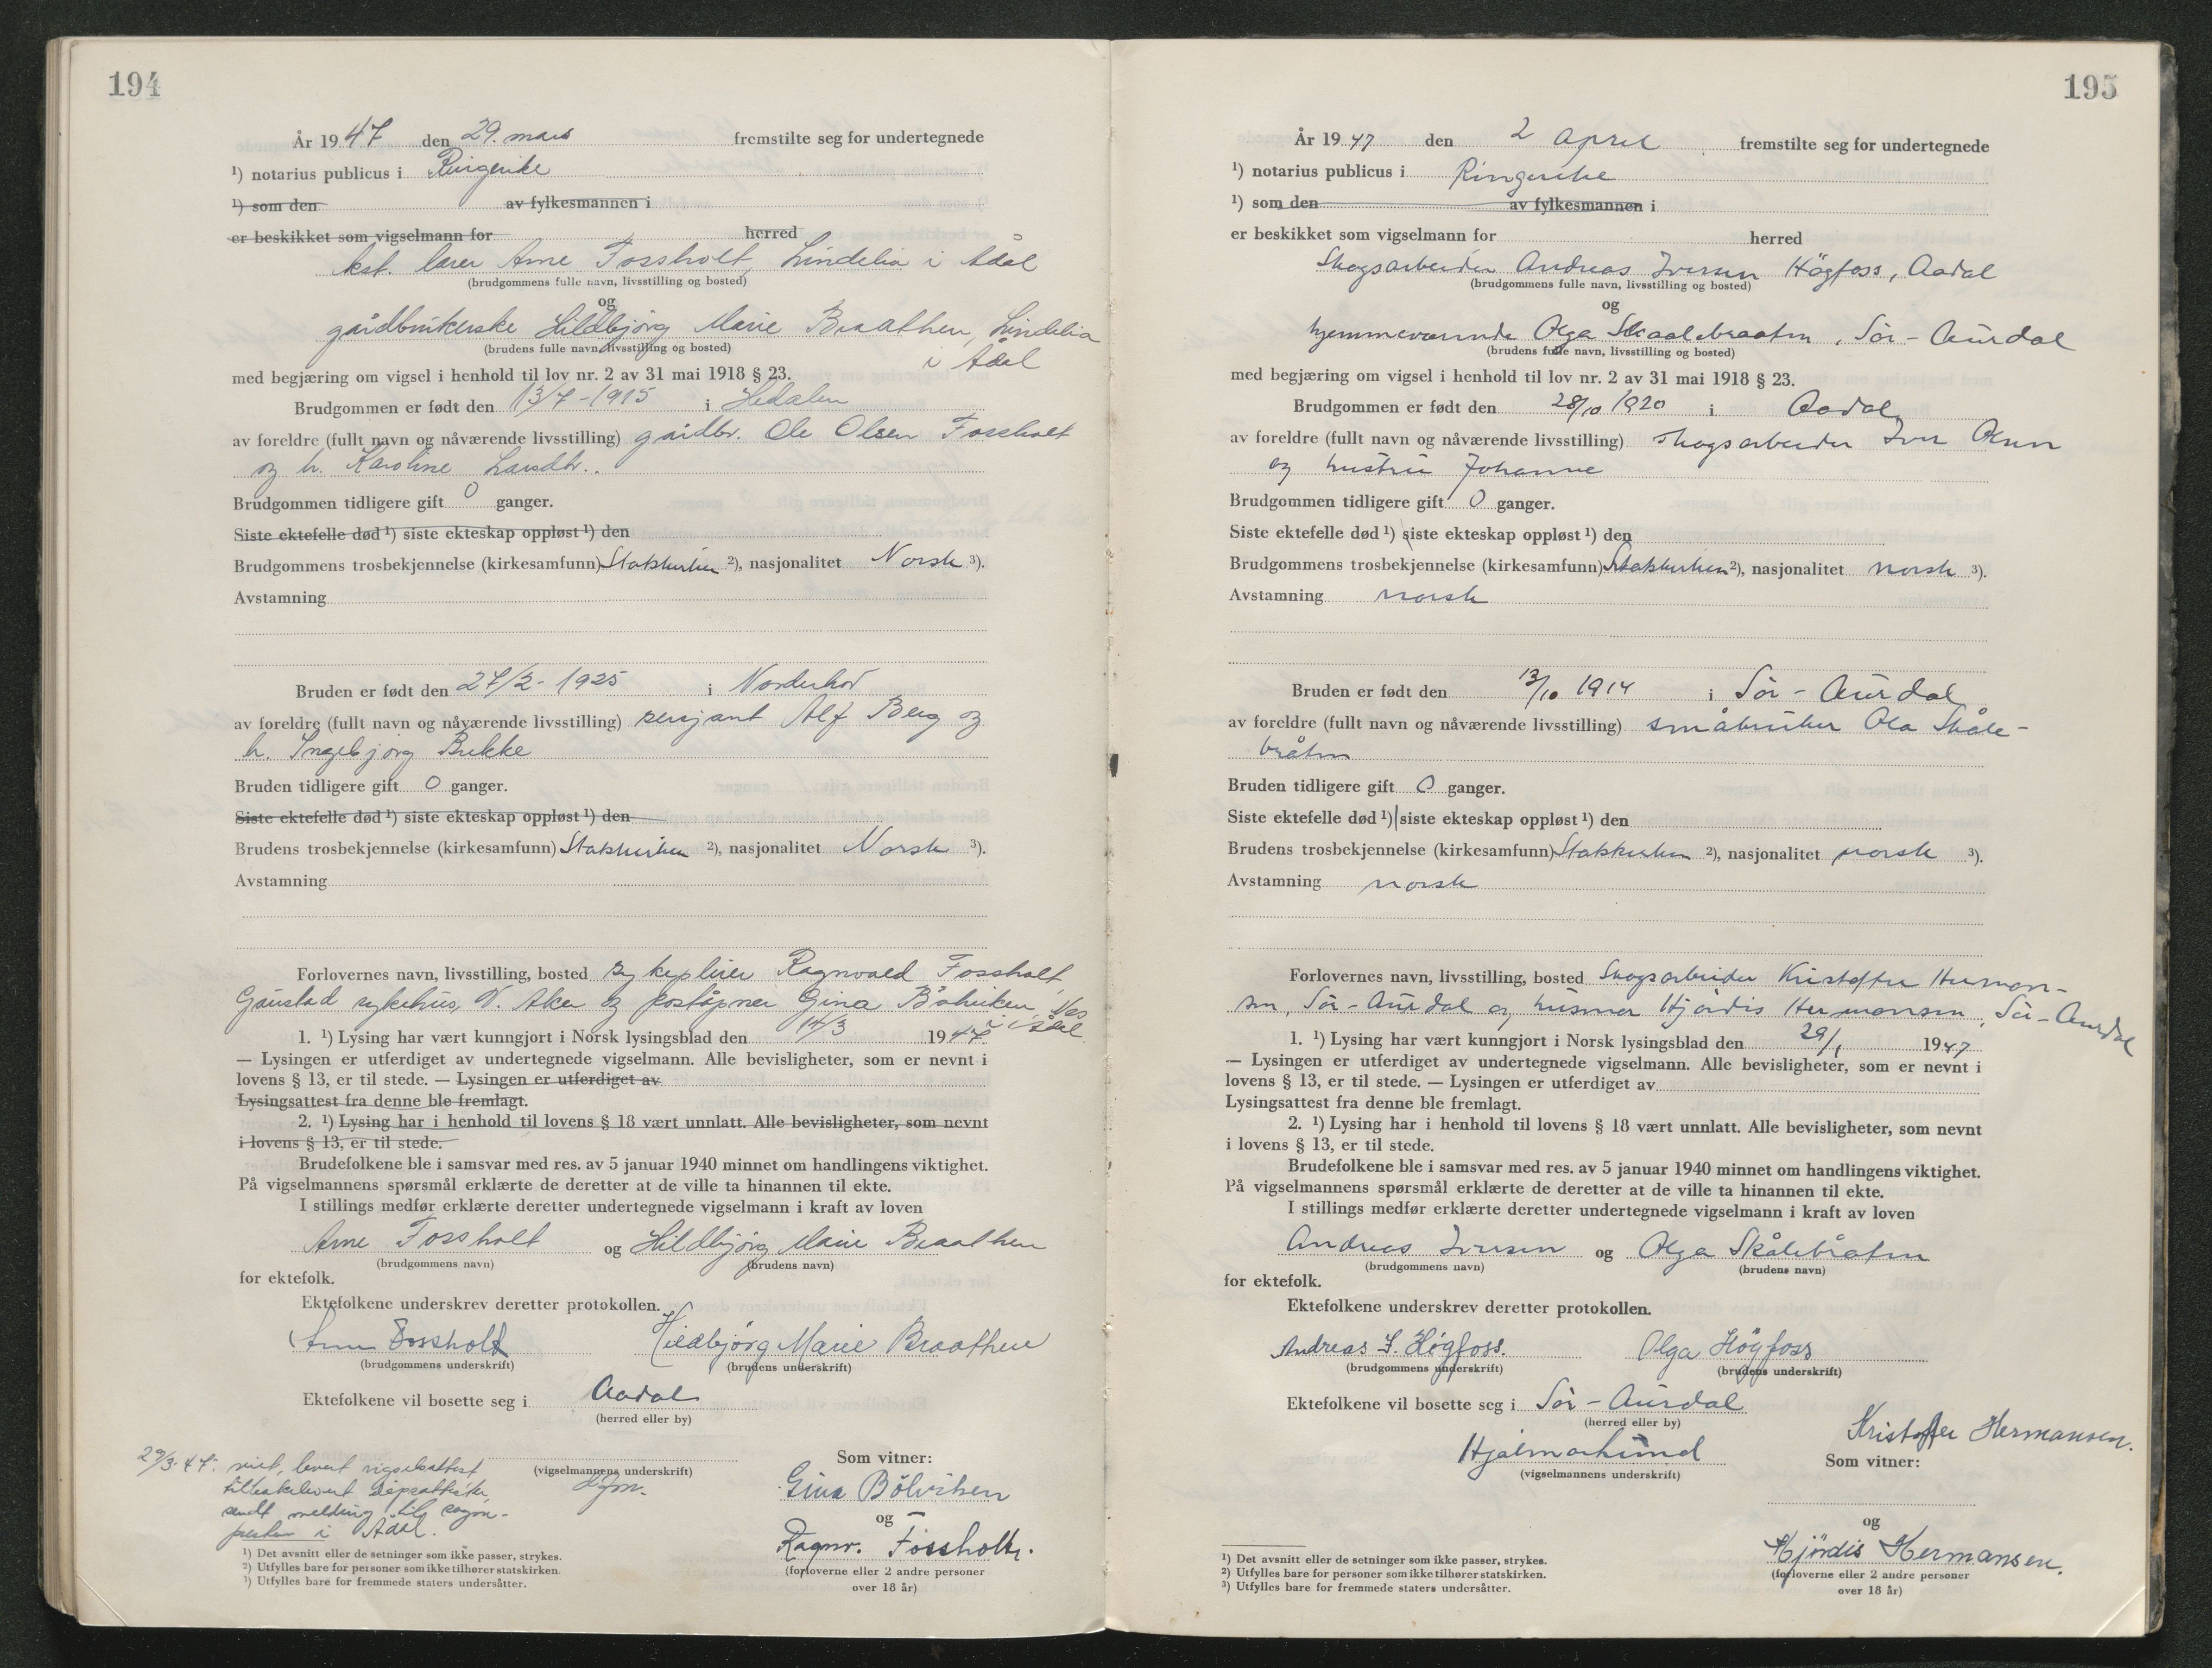 194
År 1947 den 29. mars fremstilte seg for undertegnede
¹) notarius publicus i Ringerike
¹) som den av fylkesmannen i
er beskikket som vigselmann for herred
kst. lærer Arne Fossholt, Lindelia i Ådal
(brudgommens fulle navn, livsstilling og bosted)
og
gårdbrukerske Hildbjörg Marie Braathen, Lindelia
(brudens fulle navn, livsstilling og bosted)
i Ådal
med begjæring om vigsel i henhold til lov nr. 2 av 31 mai 1918 § 23.
Brudgommen er født den 13/7-1915 i Hedalen
av foreldre (fullt navn og nåværende livsstilling) gårdbr. Ole Olsen Fossholt
og h. Karoline Larsdtr.
Brudgommen tidligere gift 0 ganger.
Siste ektefelle død ¹) siste ekteskap oppløst ¹) den
Brudgommens trosbekjennelse (kirkesamfunn) Statskirken ²), nasjonalitet Norsk ³).
Avstamning
Bruden er født den 27/2-1925 i Norderhov
av foreldre (fullt navn og nåværende livsstilling) sersjant Alf Berg og
h. Ingebjørg Bukke
Bruden tidligere gift 0 ganger.
Siste ektefelle død ¹) siste ekteskap oppløst ¹) den
Brudens trosbekjennelse (kirkesamfunn) Statskirken ²), nasjonalitet Norsk ³).
Avstamning
Forlovernes navn, livsstilling, bosted sykepleier Ragnvald Fossholt,
Gaustad sykehus, V. Aker og poståpner Gina Bölviken,
i Ådal
1. ¹) Lysing har vært kunngjort i Norsk lysingsblad den 14/3 1947
— Lysingen er utferdiget av undertegnede vigselmann. Alle bevisligheter, som er nevnt i
lovens § 13, er til stede. — Lysingen er utferdiget av
Lysingsattest fra denne ble fremlagt.
2. ¹) Lysing har i henhold til lovens § 18 vært unnlatt. Alle bevisligheter, som nevnt
i lovens § 13, er til stede.
Brudefolkene ble i samsvar med res. av 5 januar 1940 minnet om handlingens viktighet.
På vigselmannens spørsmål erklærte de deretter at de ville ta hinannen til ekte.
I stillings medfør erklærte deretter undertegnede vigselmann i kraft av loven
Arne Fossholt og Hildbjörg Marie Braathen
(brudgommens navn) (brudens navn)
for ektefolk.
Ektefolkene underskrev deretter protokollen.
Arne Fossholt Hildbjörg Marie Braathen
(brudgommens underskrift) (brudens underskrift)
Ektefolkene vil bosette seg i Aadal
(herred eller by)
29/3-47: levert vigselsattest
(vigselmannens underskrift)
tilbakelevert dåpsattester,
sendt melding til sogne-
presten i Ådal.
Som vitner:
Gina Bölviken
og
Ragnv. Fossholt.
(forloverne eller 2 andre personer
over 18 år)
¹) Det avsnitt eller de setninger som ikke passer, strykes.
²) Utfylles bare for personer som ikke tilhører statskirken.
³) Utfylles bare for fremmede staters undersåtter.
195
År 1947 den 2 april fremstilte seg for undertegnede
¹) notarius publicus i Ringerike
¹) som den av fylkesmannen i
er beskikket som vigselmann for herred
Skogsarbeider Andreas Iversen Högfoss, Aadal
(brudgommens fulle navn, livsstilling og bosted)
og
hjemmeværende Olga Skaalebraaten, Sör-Aurdal
(brudens fulle navn, livsstilling og bosted)
med begjæring om vigsel i henhold til lov nr. 2 av 31 mai 1918 § 23.
Brudgommen er født den 28/10 1920 i Aadal
av foreldre (fullt navn og nåværende livsstilling) skogsarbeider Iver Olsen
og hustru Johanne
Brudgommen tidligere gift 0 ganger.
Siste ektefelle død ¹) siste ekteskap oppløst ¹) den
Brudgommens trosbekjennelse (kirkesamfunn) Statskirken ²), nasjonalitet norsk ³).
Avstamning norsk
Bruden er født den 13/10 1914 i Sör-Aurdal
av foreldre (fullt navn og nåværende livsstilling) småbruker Ola Skåle-
bråten
Bruden tidligere gift 0 ganger.
Siste ektefelle død ¹) siste ekteskap oppløst ¹) den
Brudens trosbekjennelse (kirkesamfunn) Statskirken ²), nasjonalitet norsk ³).
Avstamning norsk
Forlovernes navn, livsstilling, bosted Skogsarbeider Kristoffer Herman-
sen, Sör-Aurdal og husmor Hjördis Hermansen, Sör-Aurdal
1. ¹) Lysing har vært kunngjort i Norsk lysingsblad den 29/1 1947
— Lysingen er utferdiget av undertegnede vigselmann. Alle bevisligheter, som er nevnt i
lovens § 13, er til stede. — Lysingen er utferdiget av
Lysingsattest fra denne ble fremlagt.
2. ¹) Lysing har i henhold til lovens § 18 vært unnlatt. Alle bevisligheter, som nevnt
i lovens § 13, er til stede.
Brudefolkene ble i samsvar med res. av 5 januar 1940 minnet om handlingens viktighet.
På vigselmannens spørsmål erklærte de deretter at de ville ta hinannen til ekte.
I stillings medfør erklærte deretter undertegnede vigselmann i kraft av loven
Andreas Iversen og Olga Skålebråten
(brudgommens navn) (brudens navn)
for ektefolk.
Ektefolkene underskrev deretter protokollen.
Andreas I. Högfoss. Olga Högfoss
(brudgommens underskrift) (brudens underskrift)
Ektefolkene vil bosette seg i Sör-Aurdal
(herred eller by)
Kristoffer Hermansen.
(vigselmannens underskrift)
Som vitner:
og
Hjördis Hermansen.
(forloverne eller 2 andre personer
over 18 år)
¹) Det avsnitt eller de setninger som ikke passer, strykes.
²) Utfylles bare for personer som ikke tilhører statskirken.
³) Utfylles bare for fremmede staters undersåtter.